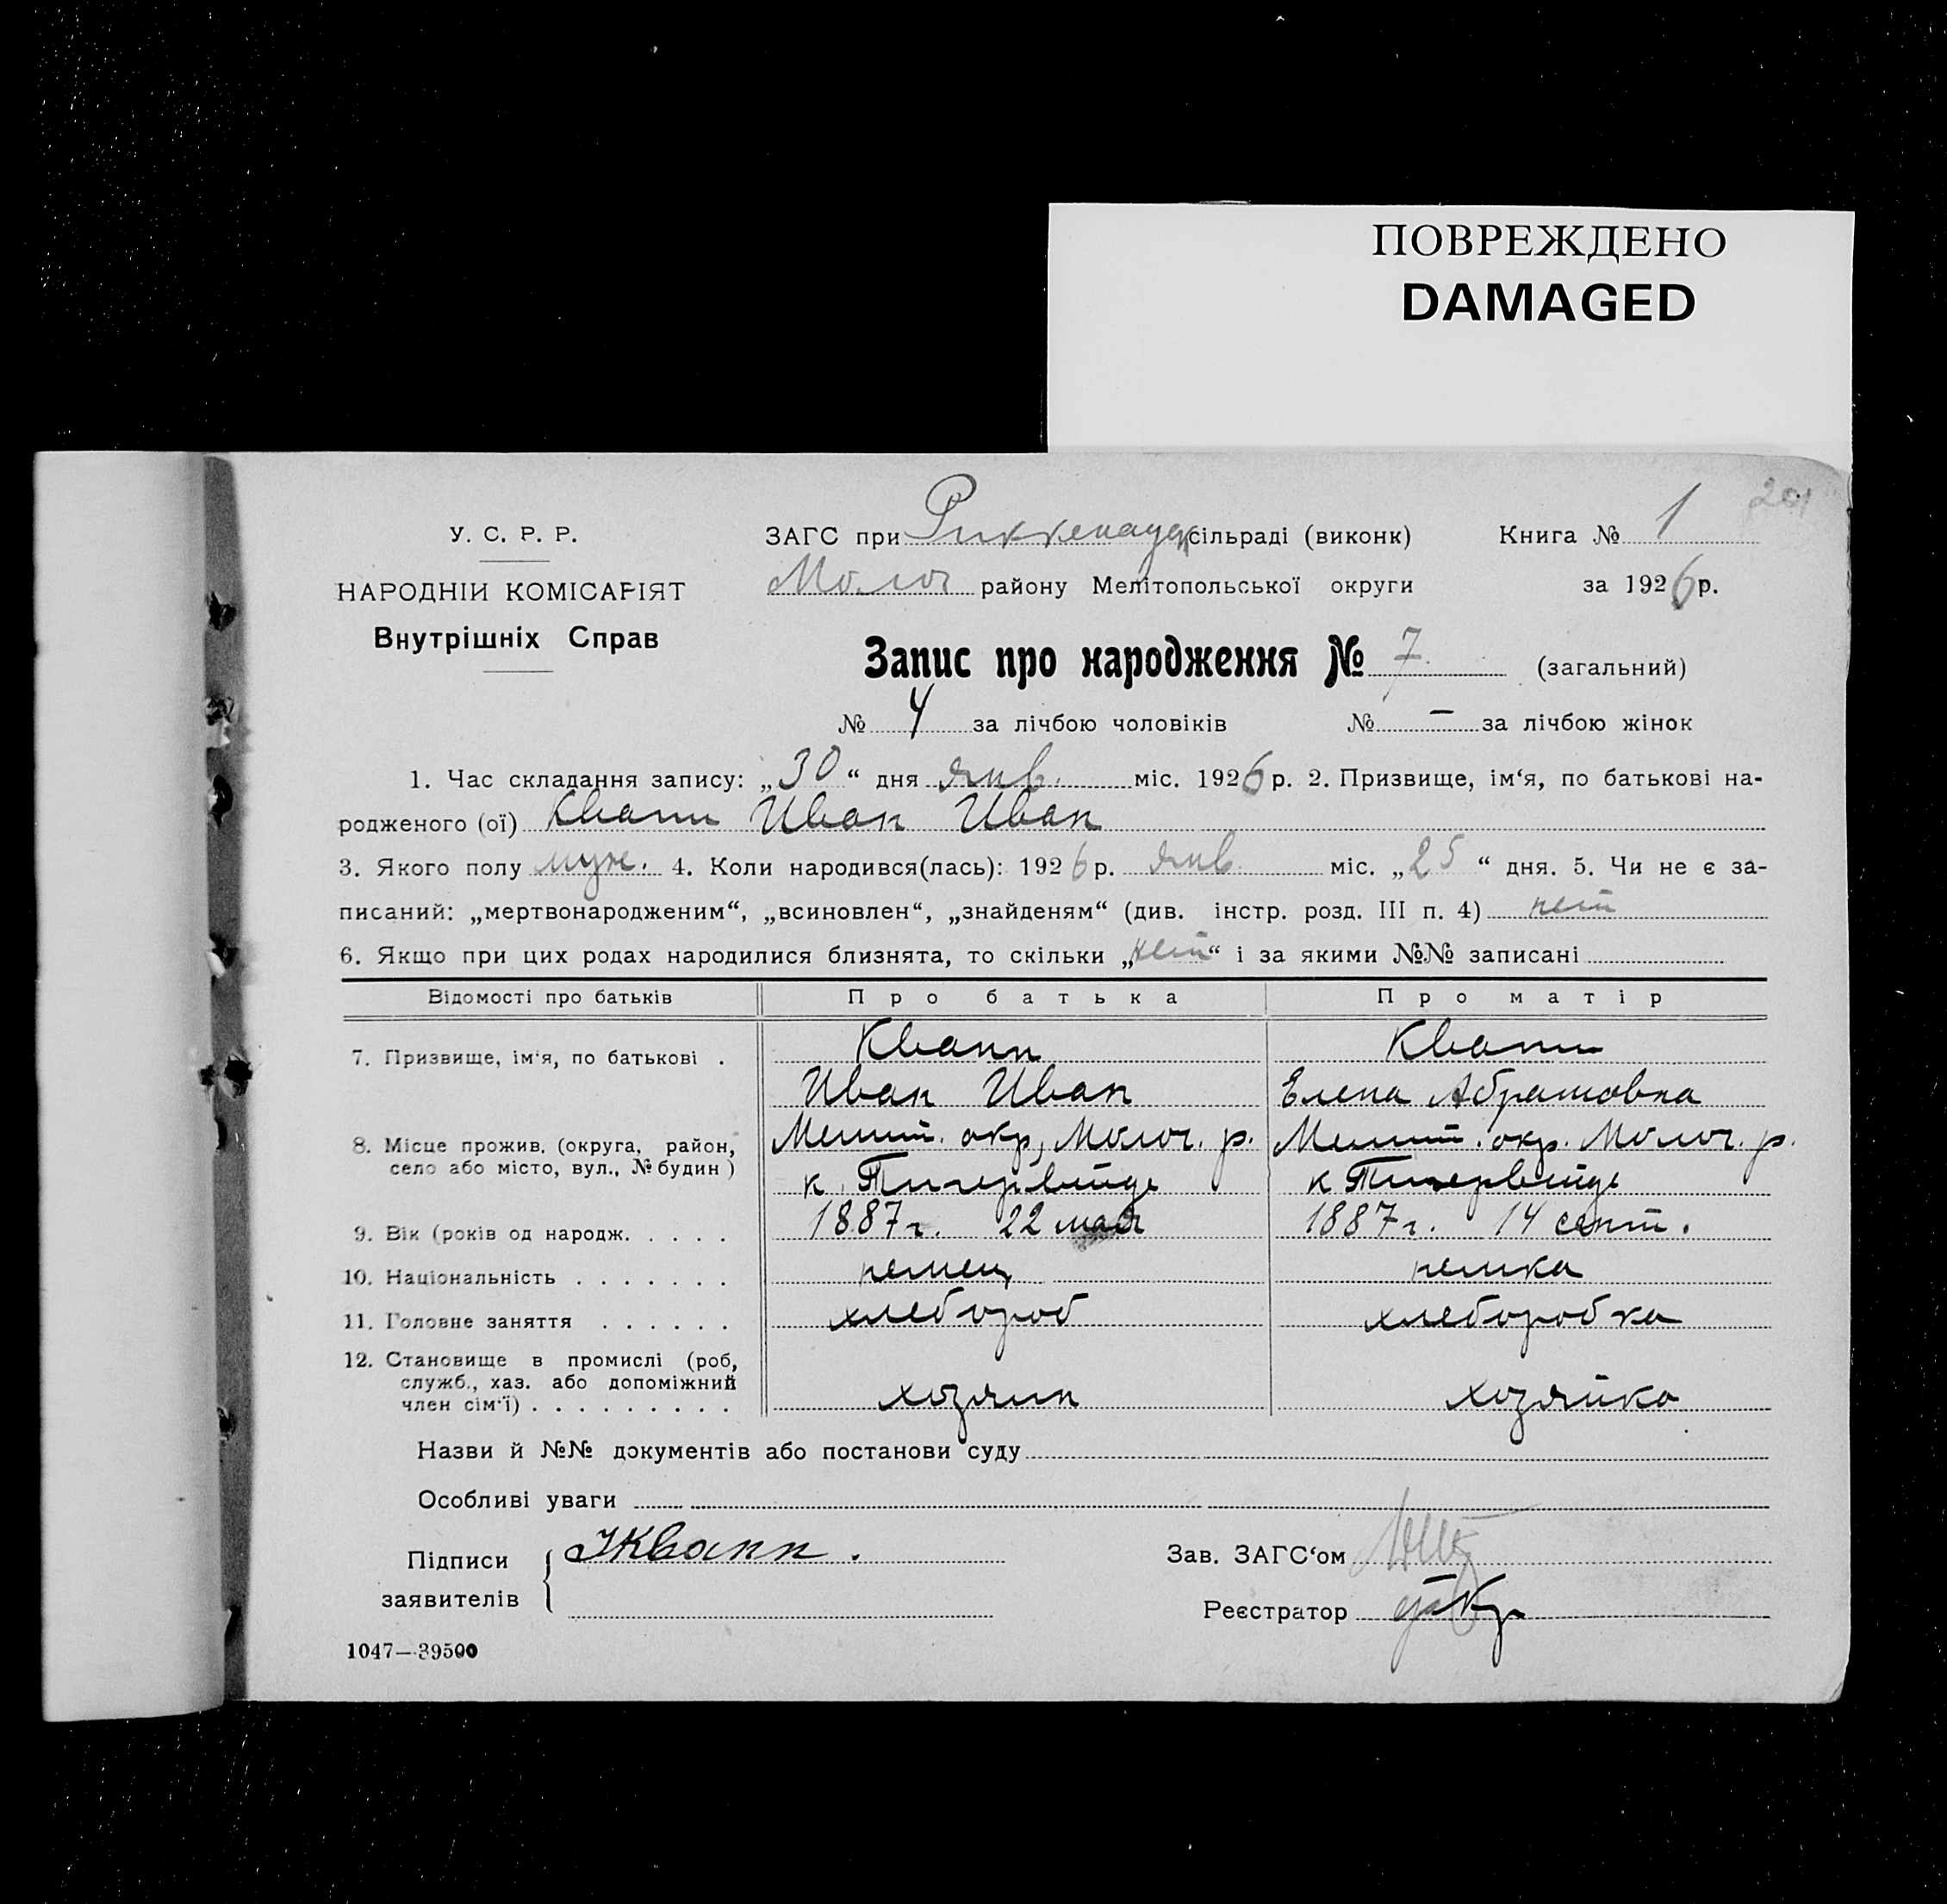 ПОВРЕЖДЕНО
DAMAGED
201
У. С. Р. Р.
НАРОДНІЙ КОМІСАРІЯТ
Внутрішніх Справ
ЗАГС при Риккенауск сільраді (виконк) Книга № 1
Молоч району Мелітопольської округи за 1926 р.
Запис про народження № 7 (загальний)
№ 4 за лічбою чоловіків № — за лічбою жінок
1. Час складання запису: „30“ дня янв. міс. 1926 р. 2. Призвище, ім‘я, по батькові на-
родженого (ої) Квапп Иван Иван
3. Якого полу муж. 4. Коли народився(лась): 1926 р. янв. міс. „25“ дня. 5. Чи не є за-
писаний: „мертвонародженим“, „всиновлен“, „знайденям“ (див. інстр. розд. III п. 4) нет
6. Якщо при цих родах народилися близнята, то скільки „нет“ і за якими №№ записані
Відомості про батьків Про батька Про матір
7. Призвище, ім‘я, по батькові . Квапп Квапп
Иван Иван Елена Абрамовна
8. Місце прожив. (округа, район, Мелит. окр, Молоч. р. Мелит. окр. Молоч. р.
село або місто, вул., № будин) к. Тигервейде к Тигервейде
9. Вік (років од народж. . . . . 1887 г. 22 мая 1887 г. 14 сент.
10. Національність . . . . . . . немец немка
11. Головне заняття . . . . . . хлебороб хлеборобка
12. Становище в промислі (роб,
служб., хаз. або допоміжний
член сім‘ї) . . . . . . . . . хозяин хозяйка
Назви й №№ документів або постанови суду
Особливі уваги
Підписи заявителів { ЖКвапп. Зав. ЗАГС‘ом
Реєстратор
1047—39500